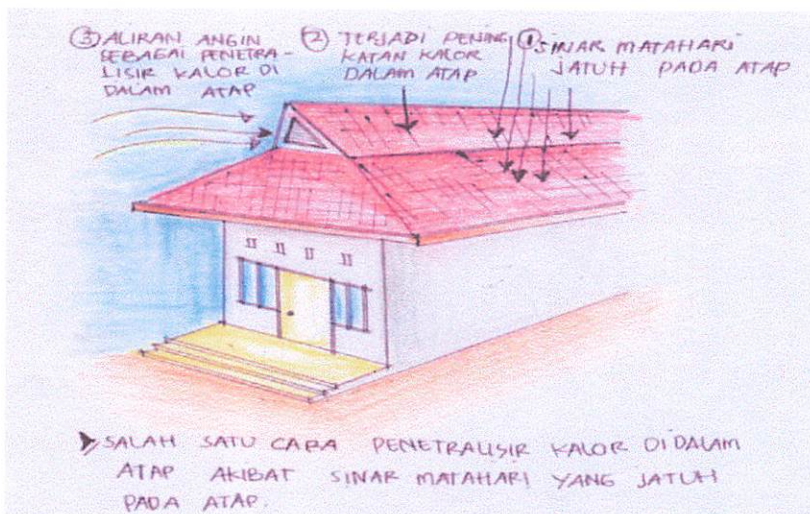 ③ ALIRAN ANGIN
SEBAGAI PENETRA-
LISIR KALOR DI
DALAM ATAP
② TERJADI PENING
KATAN KALOR
DALAM ATAP
① SINAR MATAHARI
JATUH PADA ATAP
➤ SALAH SATU CARA PENETRALISIR KALOR DIDALAM
ATAP AKIBAT SINAR MATAHARI YANG JATUH
PADA ATAP.